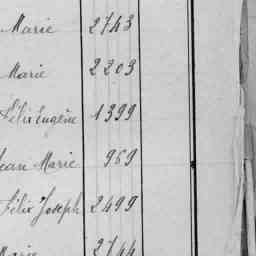 Marie 2743
Marie 2203
Félix Eugène 1399
Jean Marie 969
Félix Joseph 2499
Marie 2744